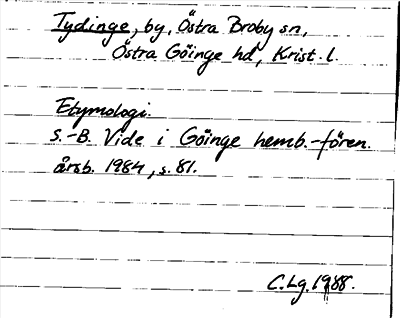 Tydinge, by, Östra Broby sn,
Östra Göinge hd, Krist. l.
Etymologi.
S.-B. Vide i Göinge hemb.-fören.
årsb. 1984, s. 81.
C.Lg. 1988.